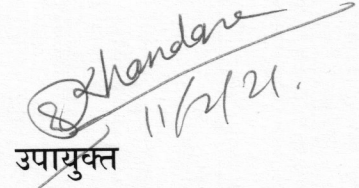 Khandare
11/2/21.
उपायुक्त